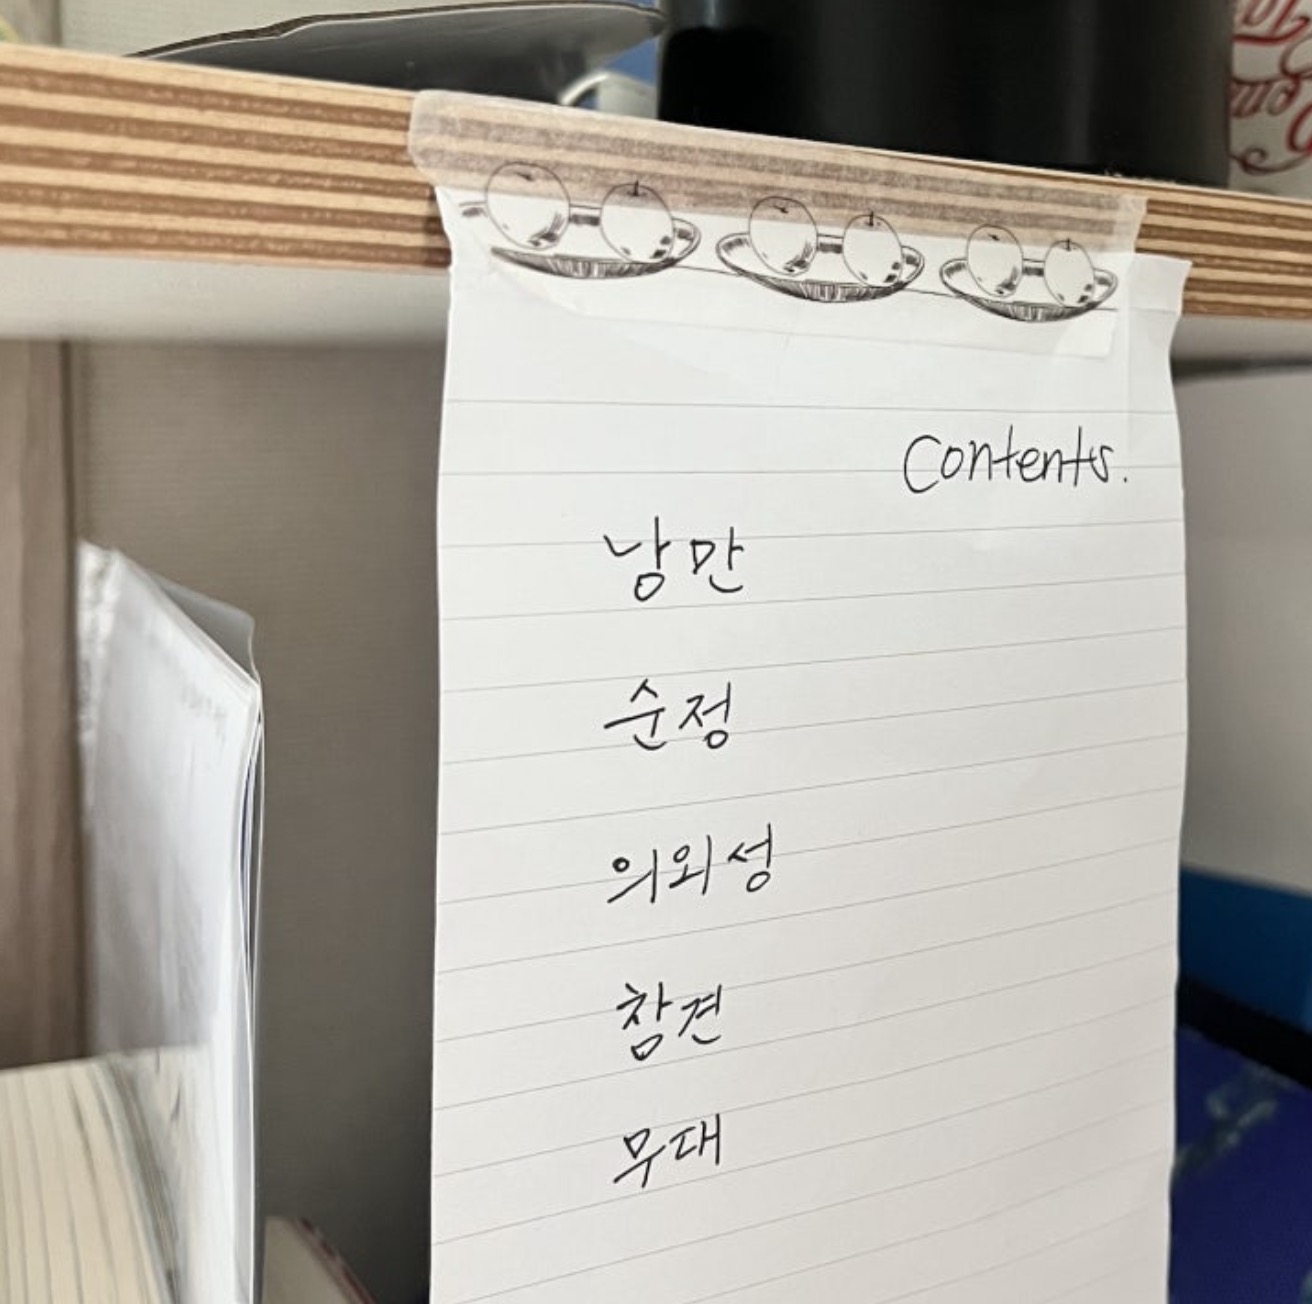 Contents.
낭만
순정
의외성
참견
무대